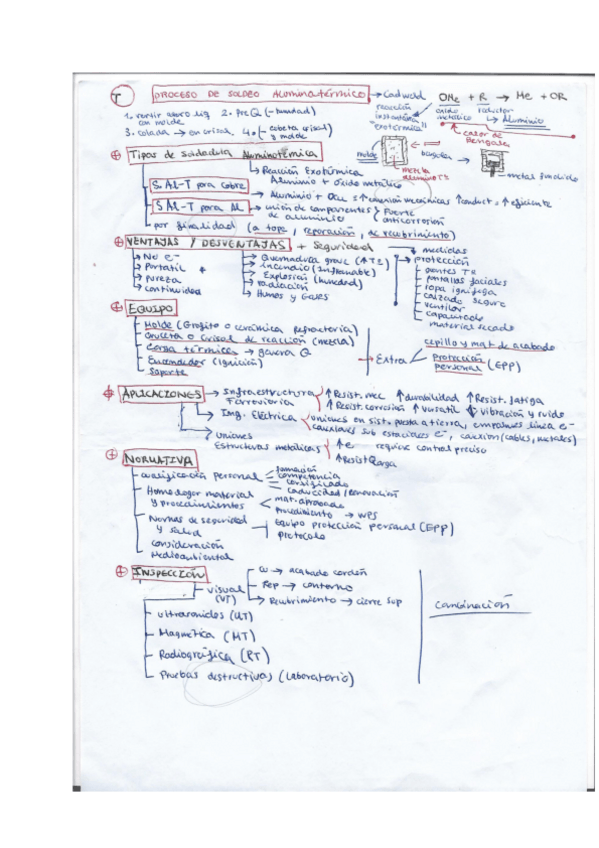 T PROCESO DE SOLDEO ALUMINOTÉRMICO → Cadweld OMe + R → Me + OR
reacción instantánea "exotérmica"
óxido metálico
reductor ↳ Aluminio
calor de
1. verter sobre liq con molde 2. Pre Q (- humedad)
3. colada → en crisol, 4. (- cubeta crisol y molde
molde
mezcla aluminoT
metal fundido
⊕ Tipos de Soldadura Aluminotérmica
↳ Reacción Exotérmica
Aluminio + óxido metálico
S. AL-T para Cobre → Aluminio + OCu ↑ unión mecánicas ↑ conduct. ↑ eficiente
S AL-T para AL → unión de componentes de aluminio } Fuerte anticorrosión
por finalidad (a tope, reparación, de recubrimiento)
⊕ VENTAJAS Y DESVENTAJAS + Seguridad
→ No e-
→ Portatil
→ pureza
→ continuidea
→ Quemadura grave (↑TZ)
→ incendio (inflamable)
→ Explosión (humedad)
→ radiación
→ Humos y Gases
→ medidas
→ protección
guantes Tª
pantallas faciales
ropa ignífega
calzado seguro
ventilar
capacitado
material secado
⊕ EQUIPO
Molde (Grafito o cerámica refractoria)
Cruceta o Crisol de reacción (mezcla)
Carga térmica → genera Q
Encendedor (ignición)
Soporte
→ Extra
cepillo y mat. de acabado
Protección personal (EPP)
⊕ APLICACIONES
→ Infraestructura Ferroviaria
↑ Resist. mec ↑ durabilidad ↑ Resist. fatiga
↑ Resist. corrosión ↑ versatil ↓ vibración y ruido
→ Ing. Eléctrica
uniones en sist. puesta a tierra, empalmes línea e-
conexiones sub estaciones e-, conexión (cables, metales)
→ uniones Estructuras metálicas
↑ e requiere control preciso
↑ Resist Carga
⊕ NORMATIVA
cualificación personal
formación
competencia
certificado
caducidad / renovación
Homologar material y procedimientos
mat. aprobado
procedimiento → WPS
Normas de seguridad y salud
Equipo protección personal (EPP)
protocolo
consideración Medioambiental
⊕ INSPECCIÓN
visual (VT)
Cu → acabado cordón
Rep → contorno
Recubrimiento → cierre sup
ultrasonidos (UT)
Magnética (MT)
Radiográfica (RT)
Pruebas destructivas (laboratorio)
Combinación